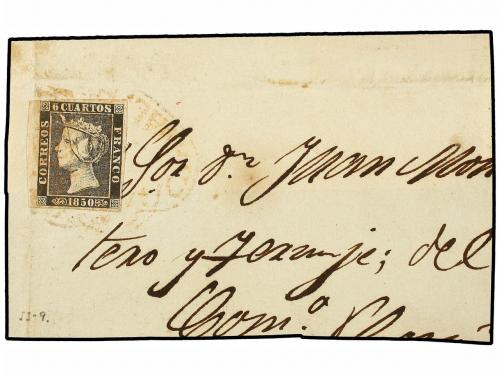 6 CUARTOS
CORREOS
FRANCO
1850
Sor. Dn. Juan Mon
tero y
; del
Com.o
11-9.